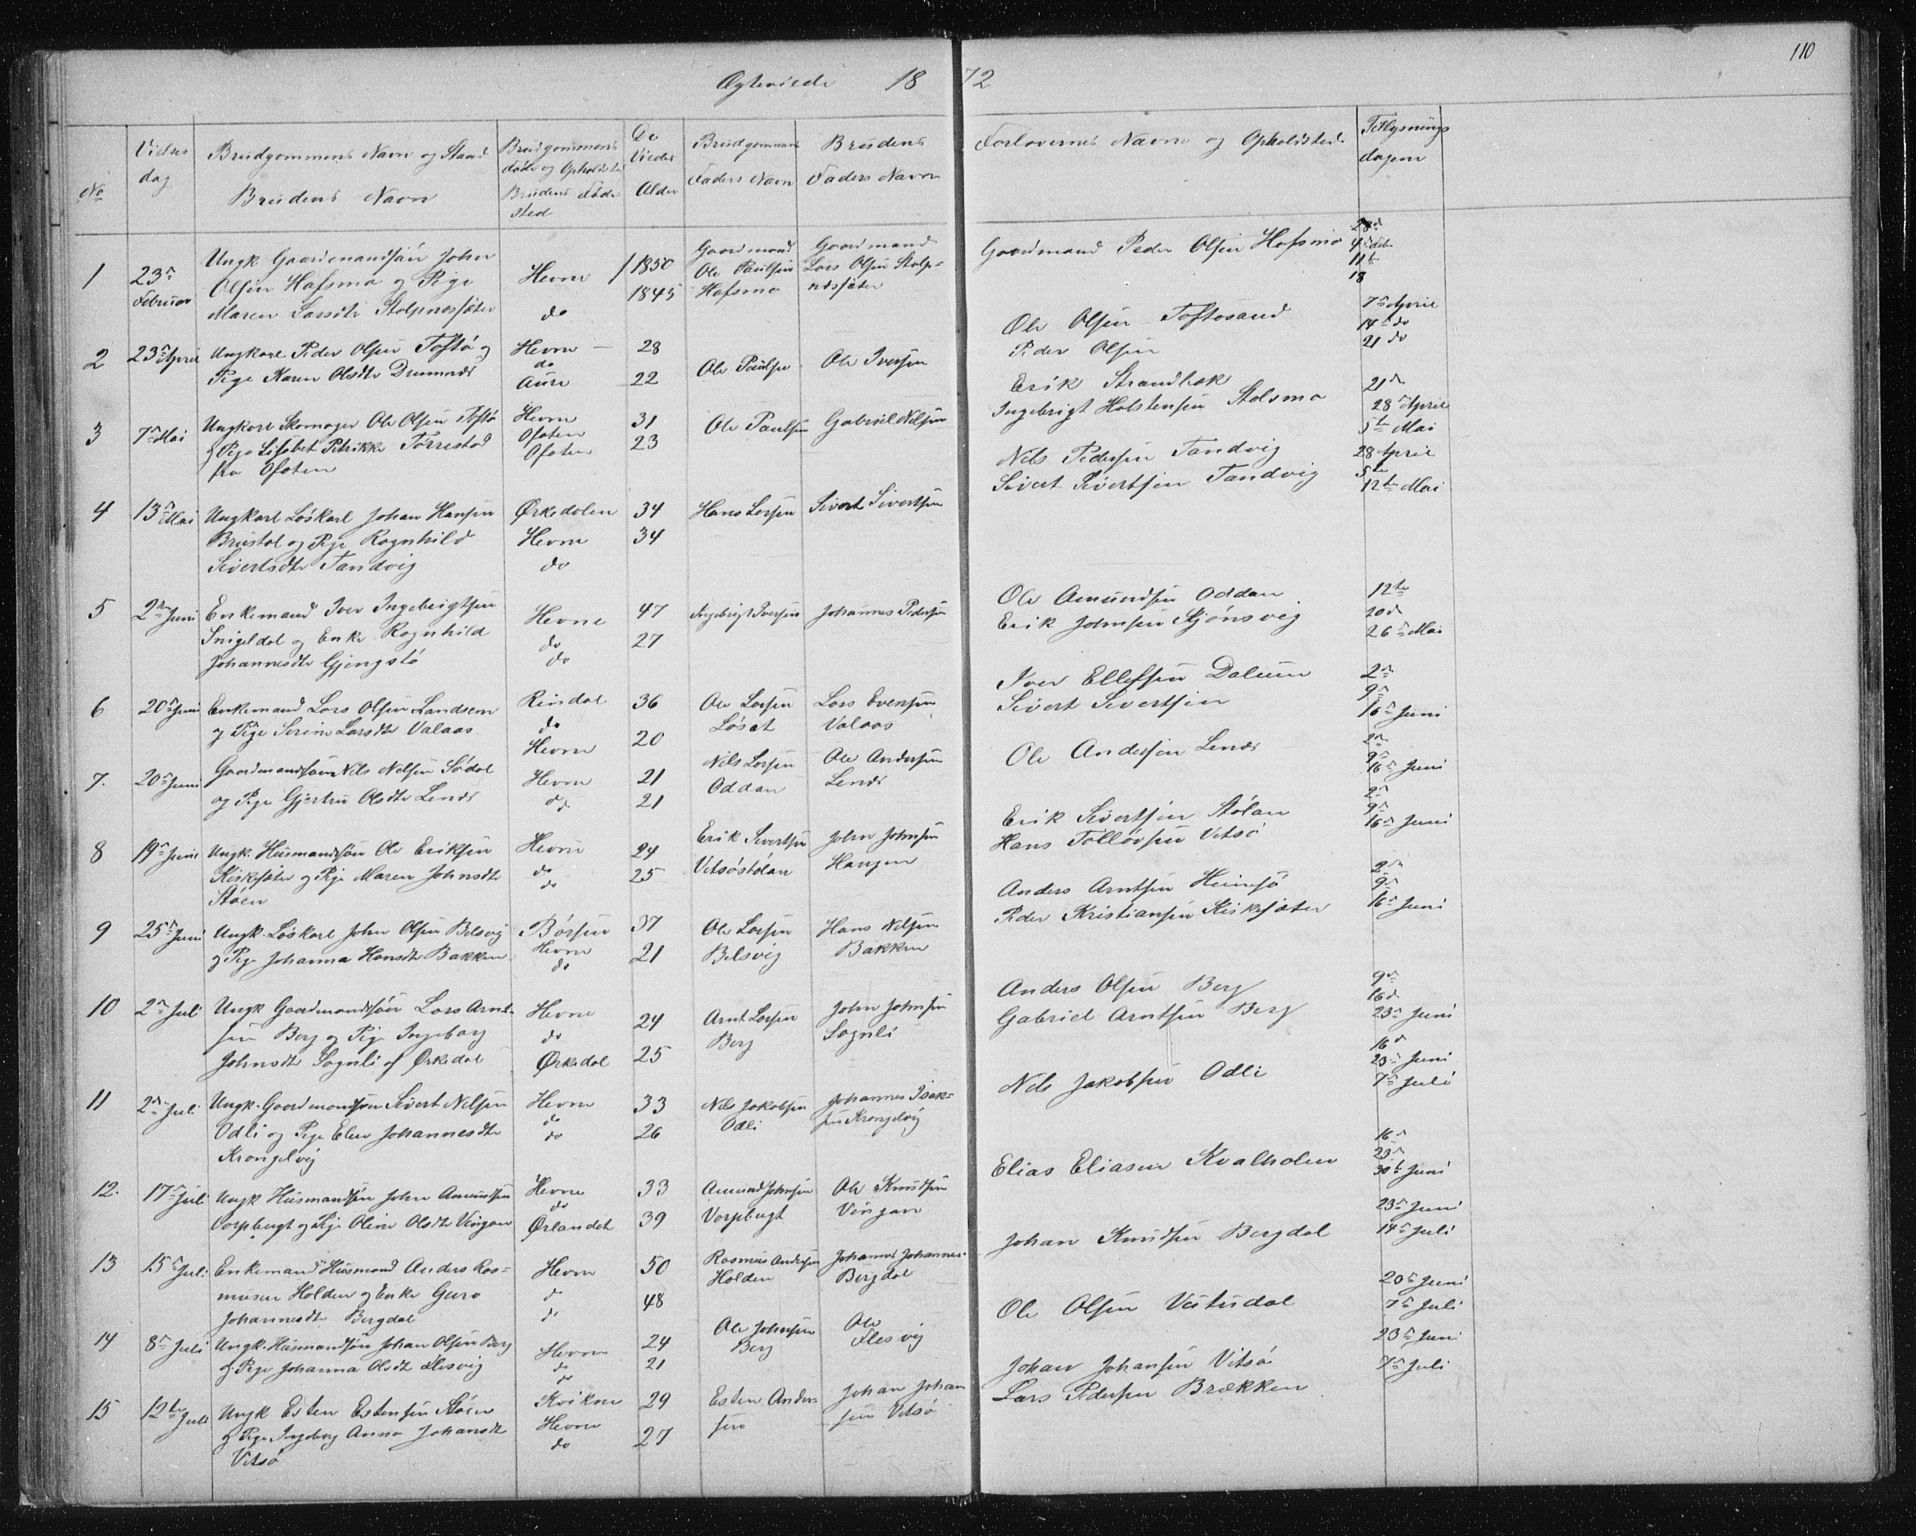 110
Ægteviede 1872
No
Vielses dag
Brudgommens Navn og Stand
Brudens Navn
Brudgommens føde og Opholdsted
Brudens Fødested
De Viedes Alder
Brudgommens Faders Navn
Brudens Faders Navn
Forlovernes Navne og Opholdsted
Tillysnings dagene
1 23de Februar
Ungk Gaardmandssøn John
Olsen Hafsmo og Pige
Maren Larsdtr Stolpnessæter
Hevne
do
1850
1845
Gaardmand
Ole Paulsen
Hafsmo
Gaardmand
Lars Olsen Stolp-
nessæter
Gaardmand Peder Olsen Hafsmo
4de
11te
18
2 23de April
Ungkarl Peder Olsen Toftø og
Pige Karen Olsdtr
Hevne
do
Aure
28
22
Ole Paulsen
Ole Iversen
Ole Olsen Toftosand
Peder Olsen
7de April
14de do
21 do
3 7de Mai
Ungkarl Skomager Ole Olsen Toftø
og Pige Lisabet Petrikke Torrestad
fra Ofoten
Hevne
Ofoten
Ofoten
31
23
Ole Paulsen
Gabriel Nilsen
Erik Strandbæk
Ingebrigt Holstensen Stolsmo
21de
28de April
5te Mai
4 13de Mai
Ungkarl Løskarl Johan Hansen
Brustol og Pige Ragnhild
Sivertsdtr Tandvig
Ørkedalen
Hevne
do
34
34
Hans Larsen
Sivert Sivertsen
Nils Pedersen Tandvig
Sivert Sivertsen Tandvig
28 April
5te
12te Mai
5 2den Juni
Enkemand Iver Ingebrigtsen
Snigeldal og Enke Ragnhild
Johannesdtr Gjengstø
Hevne
do
do
47
27
Ingebrigt Iversen
Johannes Pedersen
Ole Amundsen Oddan
Erik Johnsen Stjønsvig
12te
20de
26de Mai
6 20de Juni
Enkemand Lars Olsen Landsem
og Pige Serine Larsdtr Valaas
Rindal
do
Hevne
36
20
Ole Larsen
Løset
Lars Evensen
Valaas
Iver Ellefsen Dalum
Sivert Sivertsen
2den
9de
16de Juni
7. 20de Juni
Gaardmandssøn Nils Nilsen Sødal
og Pige Gjertru Olsdtr Lenes
Hevne
do
21
21
Nils Larsen
Oddan
Ole Andersen
Lenes
Ole Andersen Lenes
2den
9de
16de Juni
8 19de Juni
Ungk. Husmandssøn Ole Eriksen
Kirksæter og Pige Maren Johnsdtr
Støen
Hevne
do
do
24
25
Erik Sivertsen
Vitsøstølan
John Johnsen
Haugen
Erik Sivertsen Stølan
Hans Tolløvsen Vitsø
2den
9de
16de Juni
9 25de Juni
Ungk. Løskarl John Olsen Belsvig
og Pige Johanna Hansdtr Bakken
Børsen
Hevne
do
37
21
Ole Larsen
Belsvig
Hans Nilsen
Bakken
Anders Arntsen Heimsjø
Peder Kristiansen Kirksæter
2den
9de
16de Juni
10 2den Juli
Ungk Gaardmandssøn Lars Arnt-
sen Berg og Pige Ingeborg
Johnsdtr Sognli af Ørkedal
Hevne
do
Ørkedal
24
25
Arnt Larsen
Berg
John Johnsen
Sognli
Anders Olsen Berg
Gabriel Arntsen Berg
9de
16de
23de Juni
11 2den Juli
Ungk. Gaardmandssøn Sivert Nilsen
Odli og Pige Elen Johannesdtr
Krongelvig
Hevne
do
do
33
26
Nils Jakobsen
Odli
Johannes Isak-
sen Krongelvig
Nils Jakobsen Odli
16de
23de Juni
7de Juli
12. 17de Juli
Ungk Husmandssøn John Amundsen
Vorpbugt og Pige Oline Olsdtr Vingan
Hevne
do
Ørlandet
33
39
Amund Johnsen
Vorpbugt
Ole Knudsen
Vingan
Elias Eliasen Kvalholen
16de
23de
30te Juni
13 15de Juli
Enkemand Husmand Anders Ras-
musen Holden og Enke Guro
Johannesdtr Bergdal
Hevne
do
do
50
48
Rasmus Andersen
Holden
Johannes Johannes-
Bergdal
Johan Knudsen Bergdal
23de Juni
14de Juli
14 8de Juli
Ungk. Husmandssøn Johan Olsen Berg
og Pige Johanna Olsdtr Flesvig
Hevne
do
do
24
21
Ole Johnsen
Berg
Ole
Flesvig
Ole Olsen
20de Juni
7de Juli
15 12te Juli
Ungk Esten Estensen Støen
og Pige Ingeborg Anna Johansdtr
Vitsø
Kvikne
Hevne
do
29
27
Esten Anders
sen
Johan Johan
sen Vitsø
Johan Johansen Vitsø
Lars Pedersen Brækken
23de Juni
7de Juli